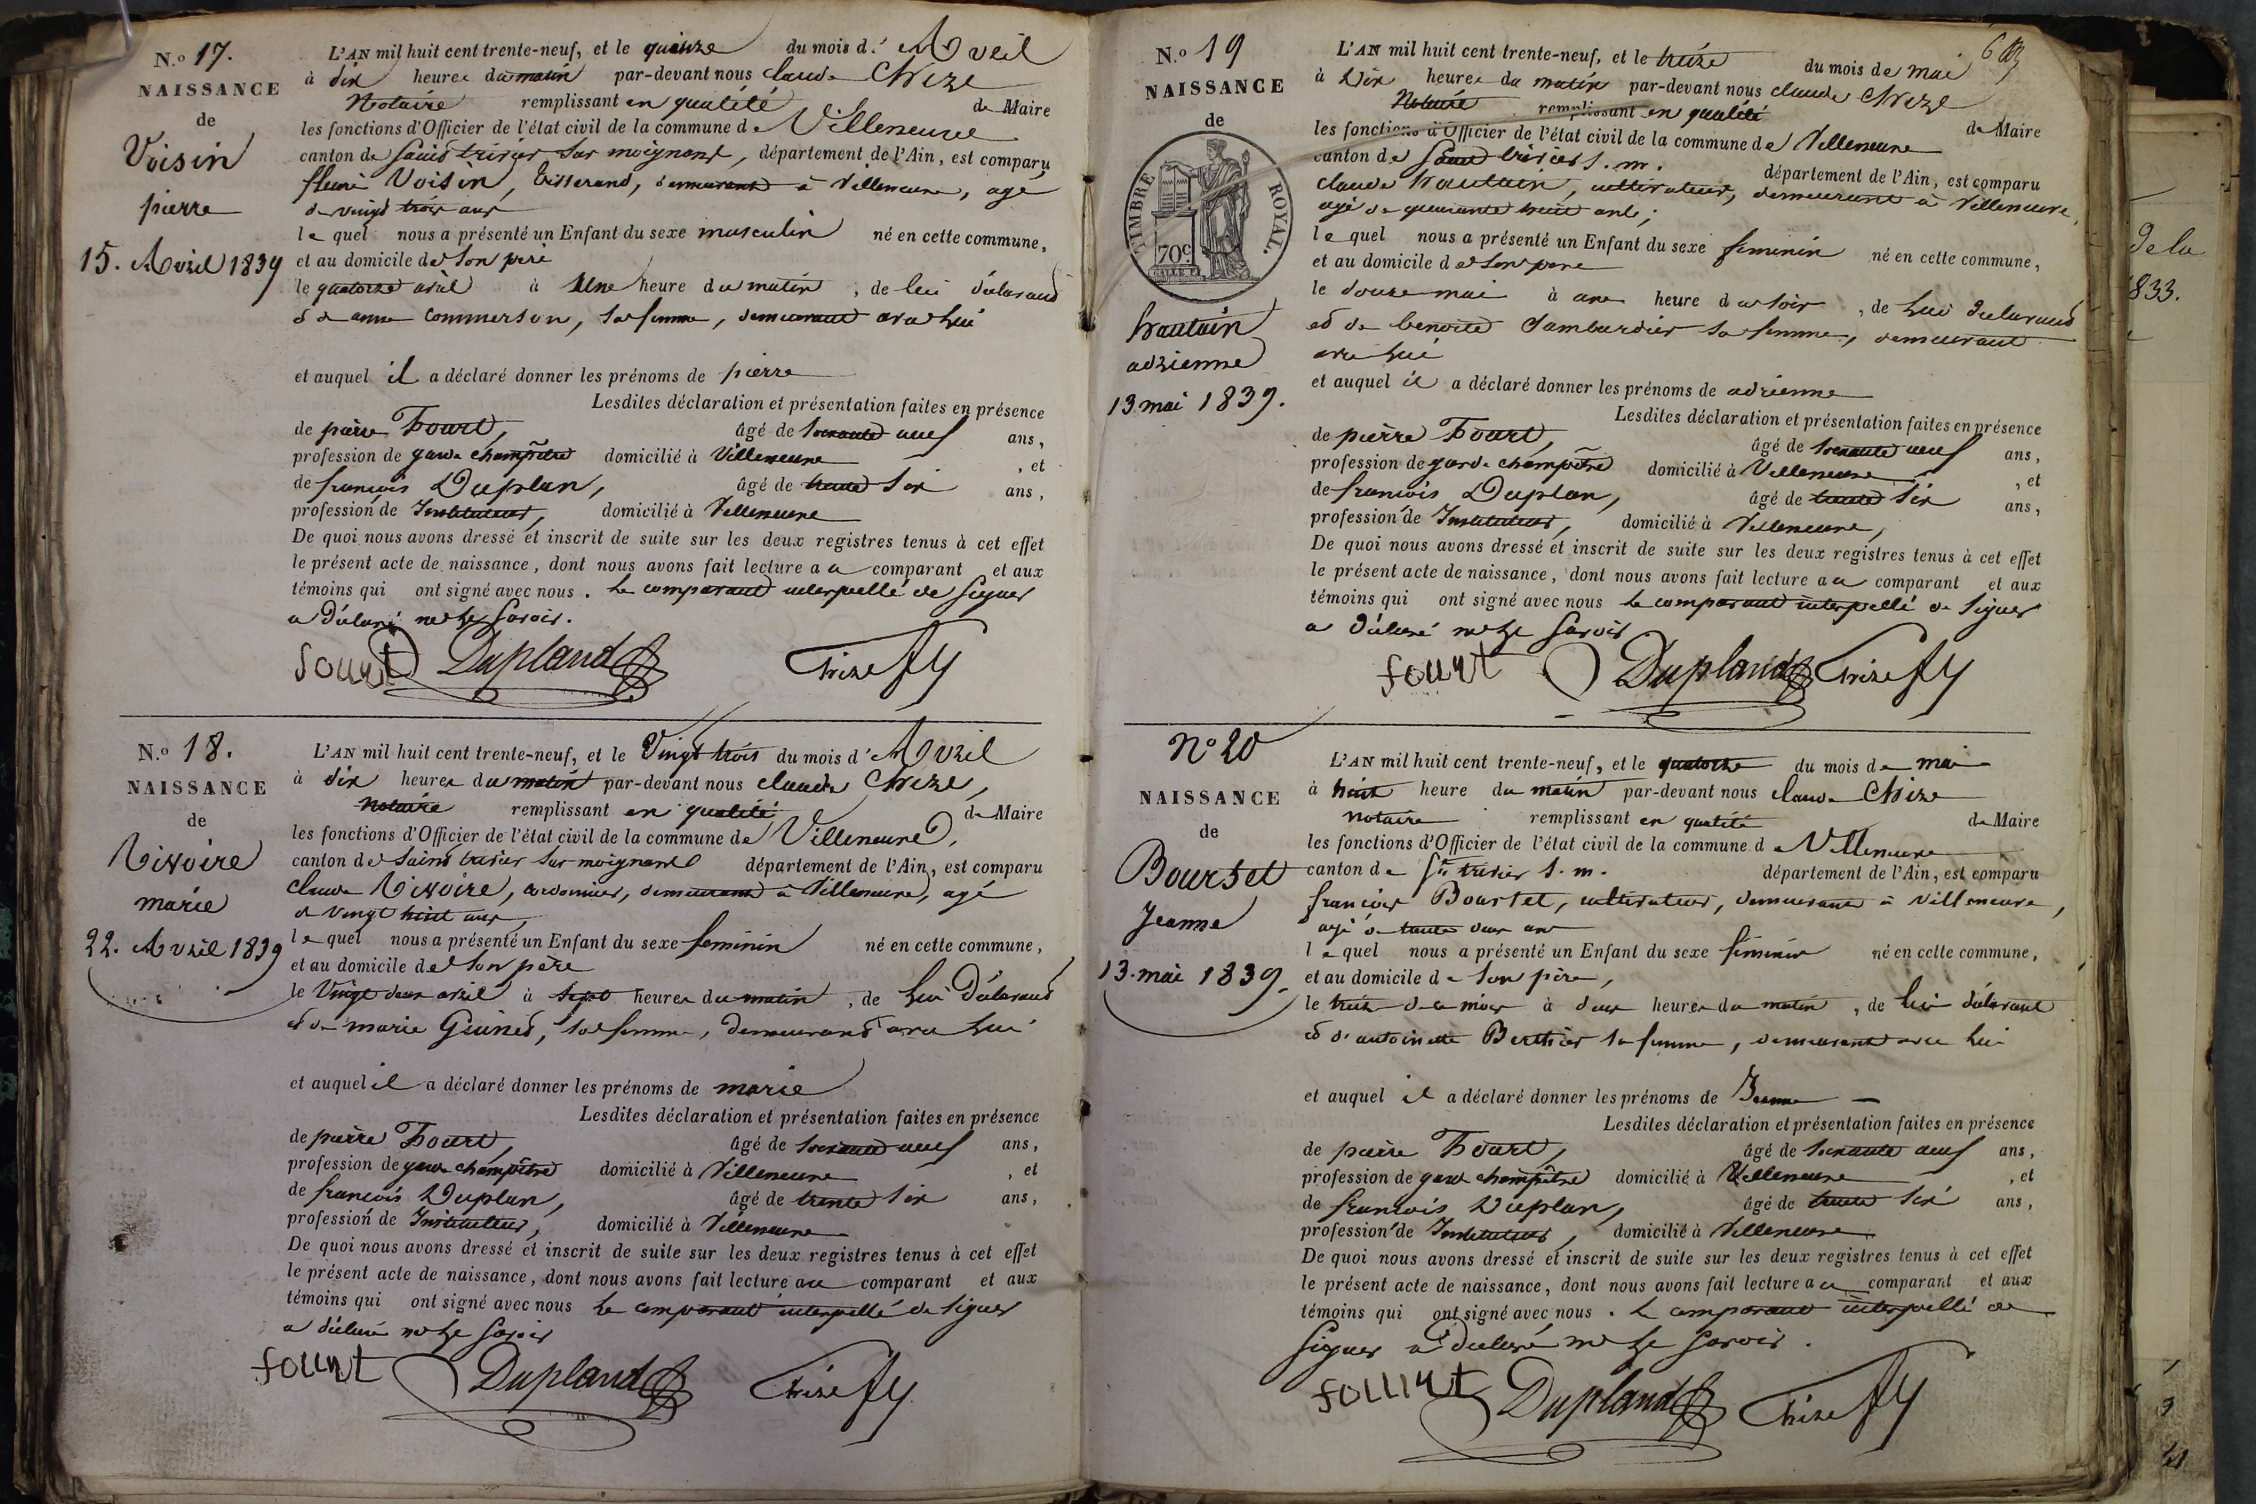 N.o 17.
NAISSANCE
de
Voisin
pierre
15. Avril 1839
L'AN mil huit cent trente-neuf, et le quinze du mois d' Avril
à dix heures du matin par-devant nous claude Chize
Notaire remplissant en qualité de Maire
les fonctions d'Officier de l'état civil de la commune de Villeneuve
canton de saint trivier sur moignant, département de l'Ain, est comparu
fleuri Voisin, tisserand, demeurant à Villeneuve, agé
de vingt trois ans
lequel nous a présenté un Enfant du sexe masculin né en cette commune,
et au domicile de son père
le quatorze avril à Une heure du matin, de lui déclarant
et de anne commerson, sa femme, demeurant avec lui
et auquel il a déclaré donner les prénoms de pierre
Lesdites déclaration et présentation faites en présence
de pierre Fourt, âgé de soixante neuf ans,
profession de garde champêtre domicilié à Villeneuve, et
de françois Duplan, âgé de trente six ans,
profession de Instituteur, domicilié à Villeneuve
De quoi nous avons dressé et inscrit de suite sur les deux registres tenus à cet effet
le présent acte de naissance, dont nous avons fait lecture au comparant et aux
témoins qui ont signé avec nous. Le comparant interpellé de signer
a déclaré ne le savoir.
fourt Dupland Chize
N.o 18.
NAISSANCE
de
Rivoire
marie
22. Avril 1839
L'AN mil huit cent trente-neuf, et le Vingt trois du mois d' Avril
à dix heures du matin par-devant nous claude Chize,
Notaire remplissant en qualité de Maire
les fonctions d'Officier de l'état civil de la commune de Villeneuve,
canton de saint trivier sur moignant département de l'Ain, est comparu
claude Rivoire, cordonnier, demeurant à Villeneuve, agé
de vingt huit ans,
lequel nous a présenté un Enfant du sexe feminin né en cette commune,
et au domicile de son père
le Vingt deux avril à sept heures du matin, de lui Déclarant
et de marie Guinet, sa femme, demeurant avec lui
et auquel il a déclaré donner les prénoms de marie
Lesdites déclaration et présentation faites en présence
de pierre Fourt, âgé de soixante neuf ans,
profession de garde champêtre domicilié à Villeneuve, et
de françois Duplan, âgé de trente six ans,
profession de Instituteur, domicilié à Villeneuve
De quoi nous avons dressé et inscrit de suite sur les deux registres tenus à cet effet
le présent acte de naissance, dont nous avons fait lecture au comparant et aux
témoins qui ont signé avec nous Le comparant interpellé de signer
a déclaré ne le savoir
fourt Dupland Chize
N.o 19
NAISSANCE
de
TIMBRE ROYAL.
70c
trautain
adrienne
13 mai 1839.
L'AN mil huit cent trente-neuf, et le treize du mois de mai
à Dix heures du matin par-devant nous claude Chize
Notaire remplissant en qualité de Maire
les fonctions d'Officier de l'état civil de la commune de Villeneuve
canton de saint trivier s. m. département de l'Ain, est comparu
claude trautain, cultivateur, demeurant à Villeneuve,
agé de quarante huit ans;
lequel nous a présenté un Enfant du sexe feminin né en cette commune,
et au domicile de son père
le douze mai à une heure du soir, de lui déclarant
et de benoite Jambardier sa femme, demeurant
avec lui
et auquel il a déclaré donner les prénoms de adrienne
Lesdites déclaration et présentation faites en présence
de pierre Fourt, âgé de soixante neuf ans,
profession de garde champêtre domicilié à Villeneuve, et
de françois Duplan, âgé de trente six ans,
profession de Instituteur, domicilié à Villeneuve,
De quoi nous avons dressé et inscrit de suite sur les deux registres tenus à cet effet
le présent acte de naissance, dont nous avons fait lecture au comparant et aux
témoins qui ont signé avec nous Le comparant interpellé de signer
a déclaré ne le savoir
fourt Dupland Chize
No 20
NAISSANCE
de
Boursel
Jeanne
13. mai 1839.
L'AN mil huit cent trente-neuf, et le quatorze du mois de mai
à huit heure du matin par-devant nous claude Chize
notaire remplissant en qualité de Maire
les fonctions d'Officier de l'état civil de la commune de Villeneuve
canton de St trivier s. m. département de l'Ain, est comparu
françois Boursel, cultivateur, demeurant à Villeneuve,
agé de trente deux ans
lequel nous a présenté un Enfant du sexe féminin né en cette commune,
et au domicile de son père,
le treize de ce mois à deux heures du matin, de lui déclarant
et d'antoinette Berthier sa femme, demeurant avec lui
et auquel il a déclaré donner les prénoms de Jeanne
Lesdites déclaration et présentation faites en présence
de pierre Fourt, âgé de soixante neuf ans,
profession de garde champêtre domicilié à Villeneuve, et
de françois Duplan, âgé de trente six ans,
profession de Instituteur, domicilié à Villeneuve
De quoi nous avons dressé et inscrit de suite sur les deux registres tenus à cet effet
le présent acte de naissance, dont nous avons fait lecture au comparant et aux
témoins qui ont signé avec nous. Le comparant interpellé de
signer a déclaré ne le savoir.
fourt Dupland Chize
de la
1833.